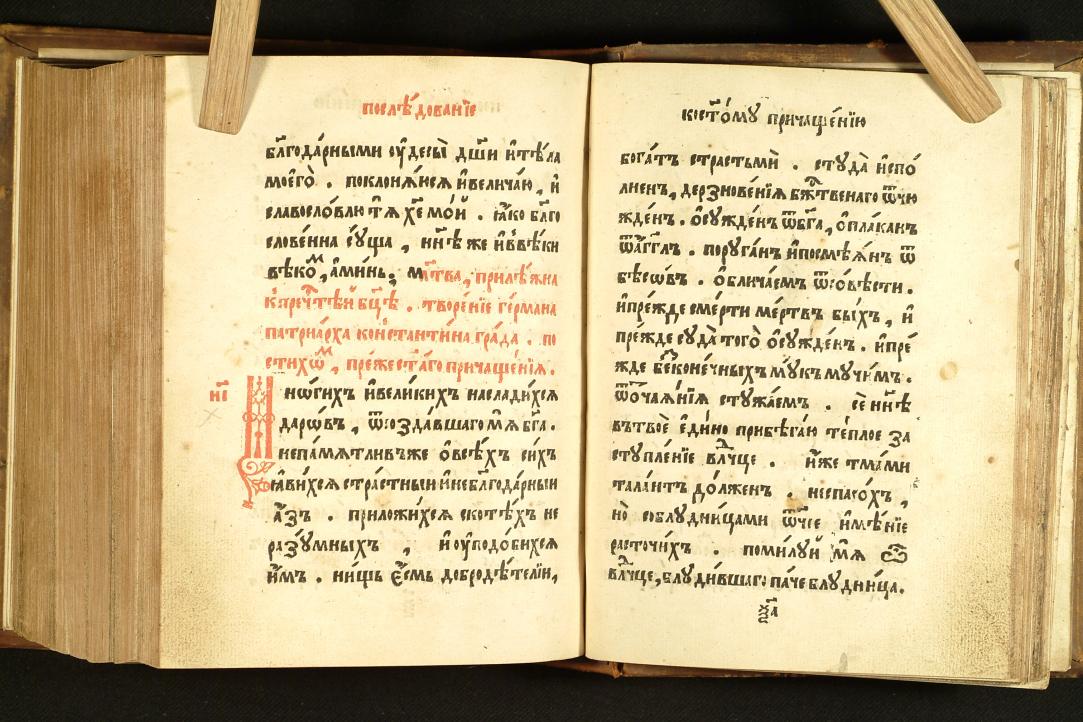 послѣ́дованїе
бл҃года́рными оу҆десы̀ дш҃и и҆тѣ́ла
моего̀ . поклонѧ́юсѧ и҆величаю̀ , и҆
славосло́влю тѧ хе҃ мо́й . ꙗ҆́ко бл҃го
слове́нна є҆́уща , нн҃ѣ же и҆ въвѣ́ки
вѣкѡ́м , а҆ми́нь . мл҃тва , прилѣ́жна
къ пречⷭ҇тѣй бц҃ѣ . творе́нїе ге́рмана
патриа́рха констаⷩ҇тина гра́да . по
стихѡ́м , пре́же ст҃а́го причаще́нїѧ .
н҃і
Мнѡ́гихъ и҆вели́кихъ наслади́хсѧ
дарѡ́въ , ѿ созда́вшаго мѧ бг҃а .
непа́мѧтливъ же ѡ҆всѣ́хъ си́хъ
ꙗ҆ви́хсѧ стра́стныи и҆небл҃года́рныи
а҆́зъ . приложи́хсѧ ското́хъ не
разу́мныхъ , и҆оу҆подо́бихсѧ
и҆̀мъ . ни́щь є҆́смь добродѣ́телїи ,
къст҃о́му причаще́нїю
бога́тъ страстьмѝ . студа̀ и҆спо́
лненъ , дерзнове́нїѧ бж҃твенаго ѿчю
жде́нъ . ѡ҆сужде́нъ ѿбг҃а , ѡ҆пла́канъ
ѿа҆́гг҃лъ . поруга́нъ и҆посмѣ́ѧнъ ѿ
бѣсѡ́въ . ѡ҆блича́емъ ѿсо́вѣсти .
и҆пре́жде сме́рти ме́ртвъ бы́хъ , и҆
пре́жде суда̀ того̀ ѡ҆сужде́нъ . и҆пре́
жде бе́сконе́чныхъ му́къ му́чимъ .
ѿѡча́ѧнїѧ стужа́емъ . се́ нн҃ѣ
въ твоѐ є҆ди́но прибѣга́ю те́плое за
ступле́нїе влⷣчце . и҆́же тма́ми
тала́нтъ до́лженъ . неспасо́хъ ,
но̀ соблудни́цами ѿче́е и҆мѣ́нїе
расточи́хъ . поми́луй мѧ ѽ
влⷣчце , блуди́вшаго па́че блудни́ца .
х҃а